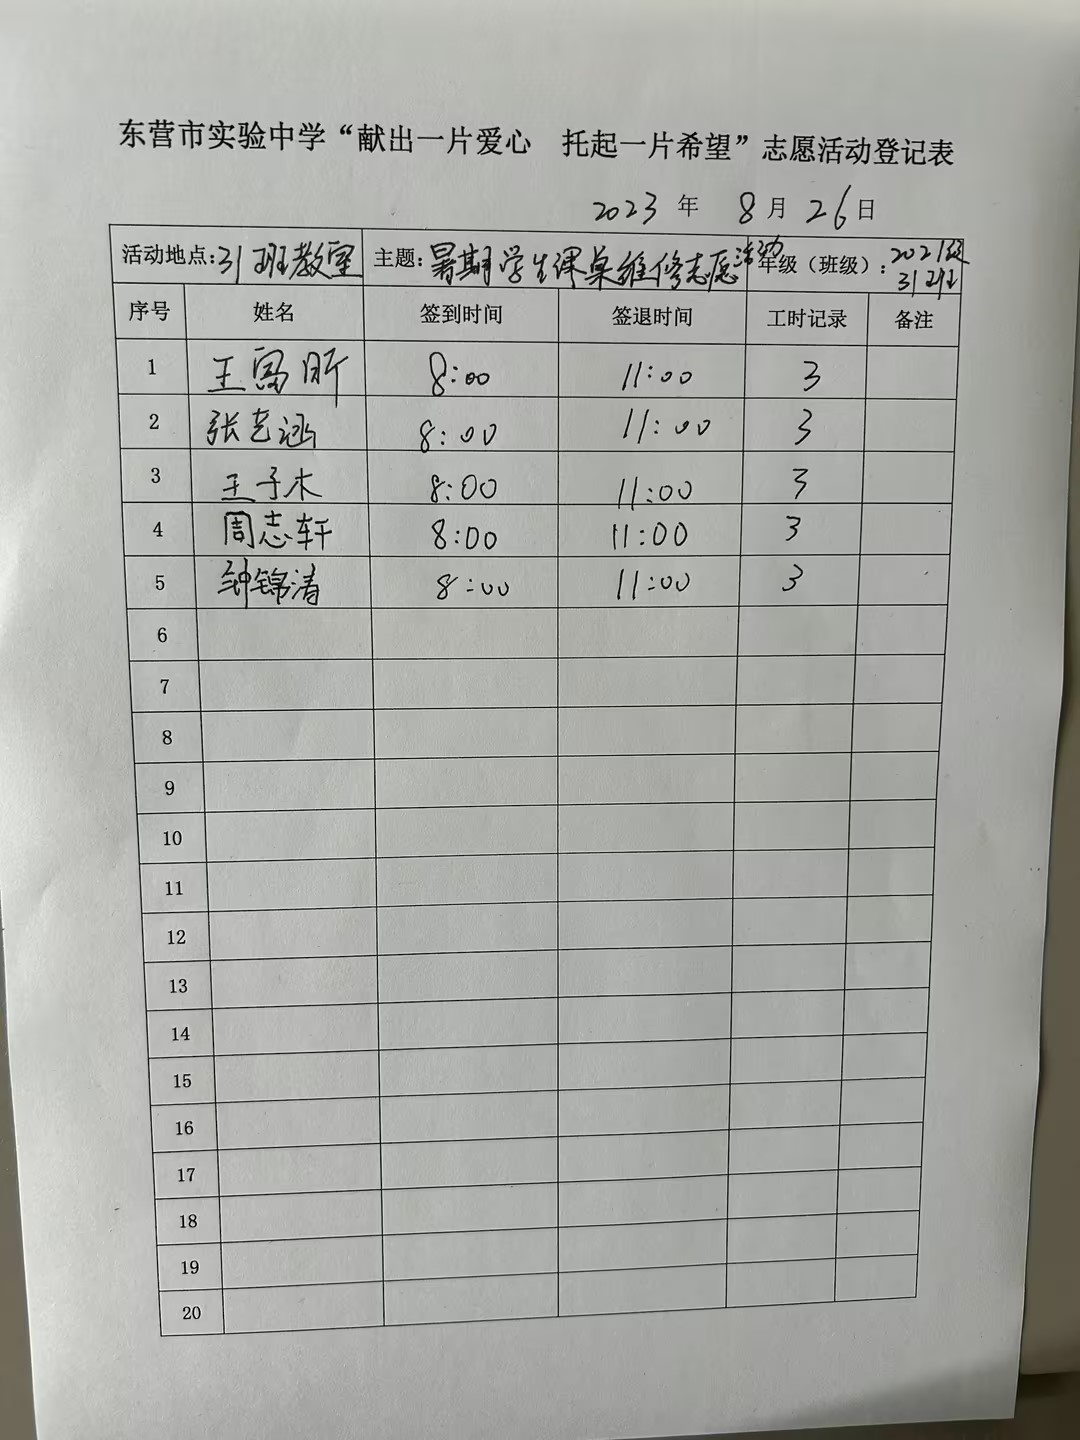 东营市实验中学“献出一片爱心 托起一片希望”志愿活动登记表
2023 年 8 月 26 日
活动地点:31班教室 主题:暑期学生课桌维修志愿活动 年级（班级）:2021级31班
序号 姓名 签到时间 签退时间 工时记录 备注
1 王富昕 8:00 11:00 3
2 张艺涵 8:00 11:00 3
3 王子木 8:00 11:00 3
4 周志轩 8:00 11:00 3
5 钟锦涛 8:00 11:00 3
6
7
8
9
10
11
12
13
14
15
16
17
18
19
20